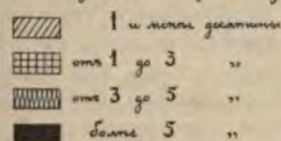 1 и менѣе десятины
отъ 1 до 3 "
отъ 3 до 5 "
болѣе 5 "